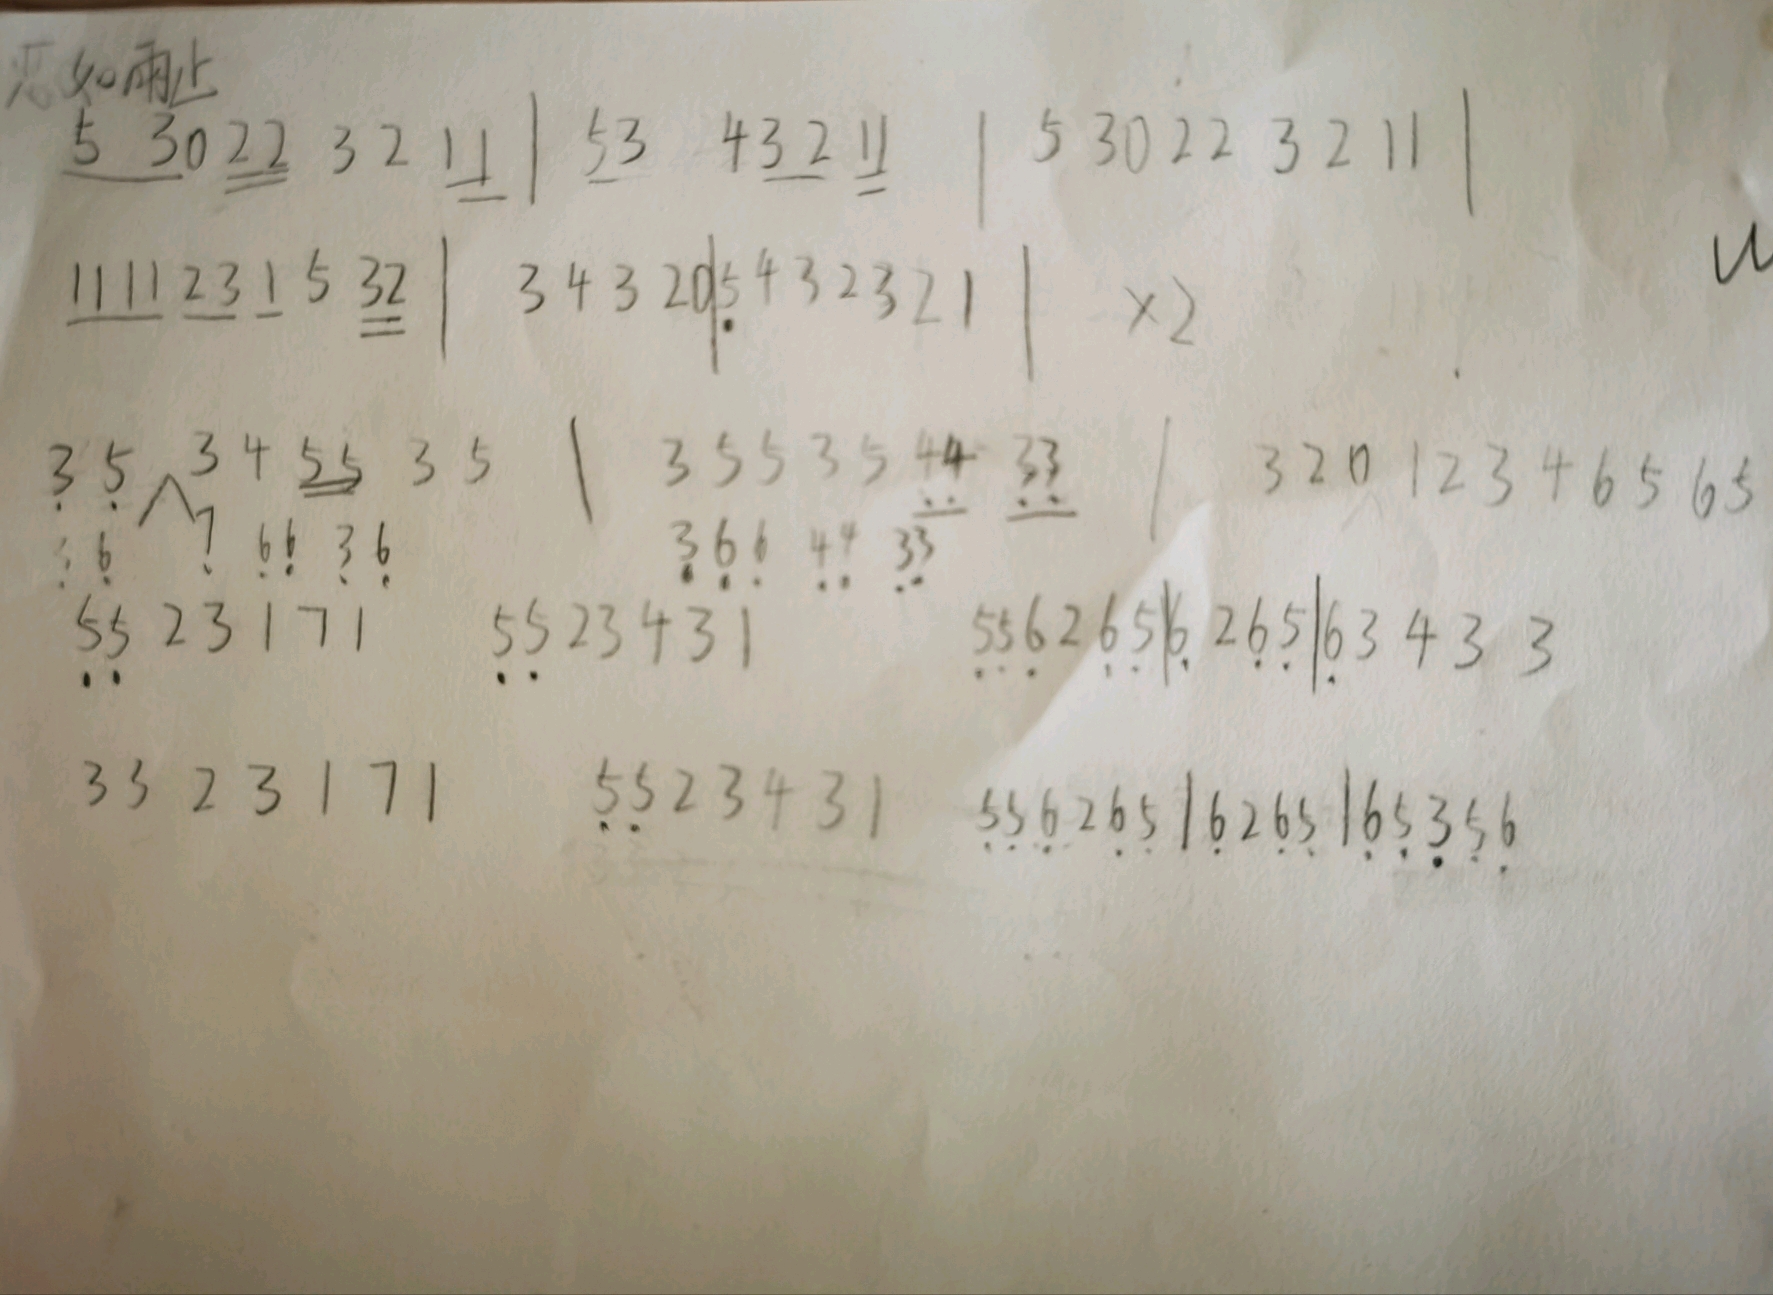 恋如雨止
5 30 22 3 2 11 | 53 4 3 2 11 | 5 30 22 3 2 11 |
1111 23 1 5 32 | 3 4 3 20 | 5 4 3 2 3 2 1 | ×2
3 5 3 4 55 3 5 | 3 5 5 3 5 44 33 | 3 2 0 1 2 3 4 6 5 6 5
3 6 7 66 3 6 3 6 6 44 33
55 2 3 1 7 1 55 2 3 4 3 1 556 2 6 5 | 6 2 6 5 | 6 3 4 3 3
33 2 3 1 7 1 55 2 3 4 3 1 556 2 6 5 | 6 2 6 5 | 6 5 3 5 6